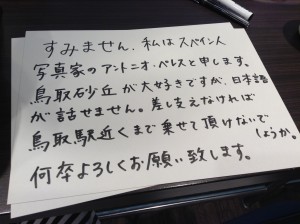 すみません.私はスペイン人
写真家のアントニオ・ペレスと申します。
鳥取砂丘が大好きですが、日本語
が話せません。差し支えなければ
鳥取駅近くまで乗せて頂けないで
しょうか。
何卒よろしくお願い致します。